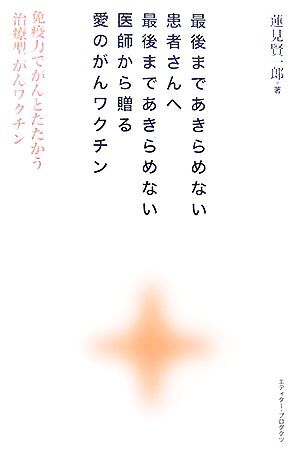 蓮見賢一郎・著
最後まであきらめない
患者さんへ
最後まであきらめない
医師から贈る
愛のがんワクチン
免疫力でがんとたたかう
治療型がんワクチン
エディター・プロダクツ